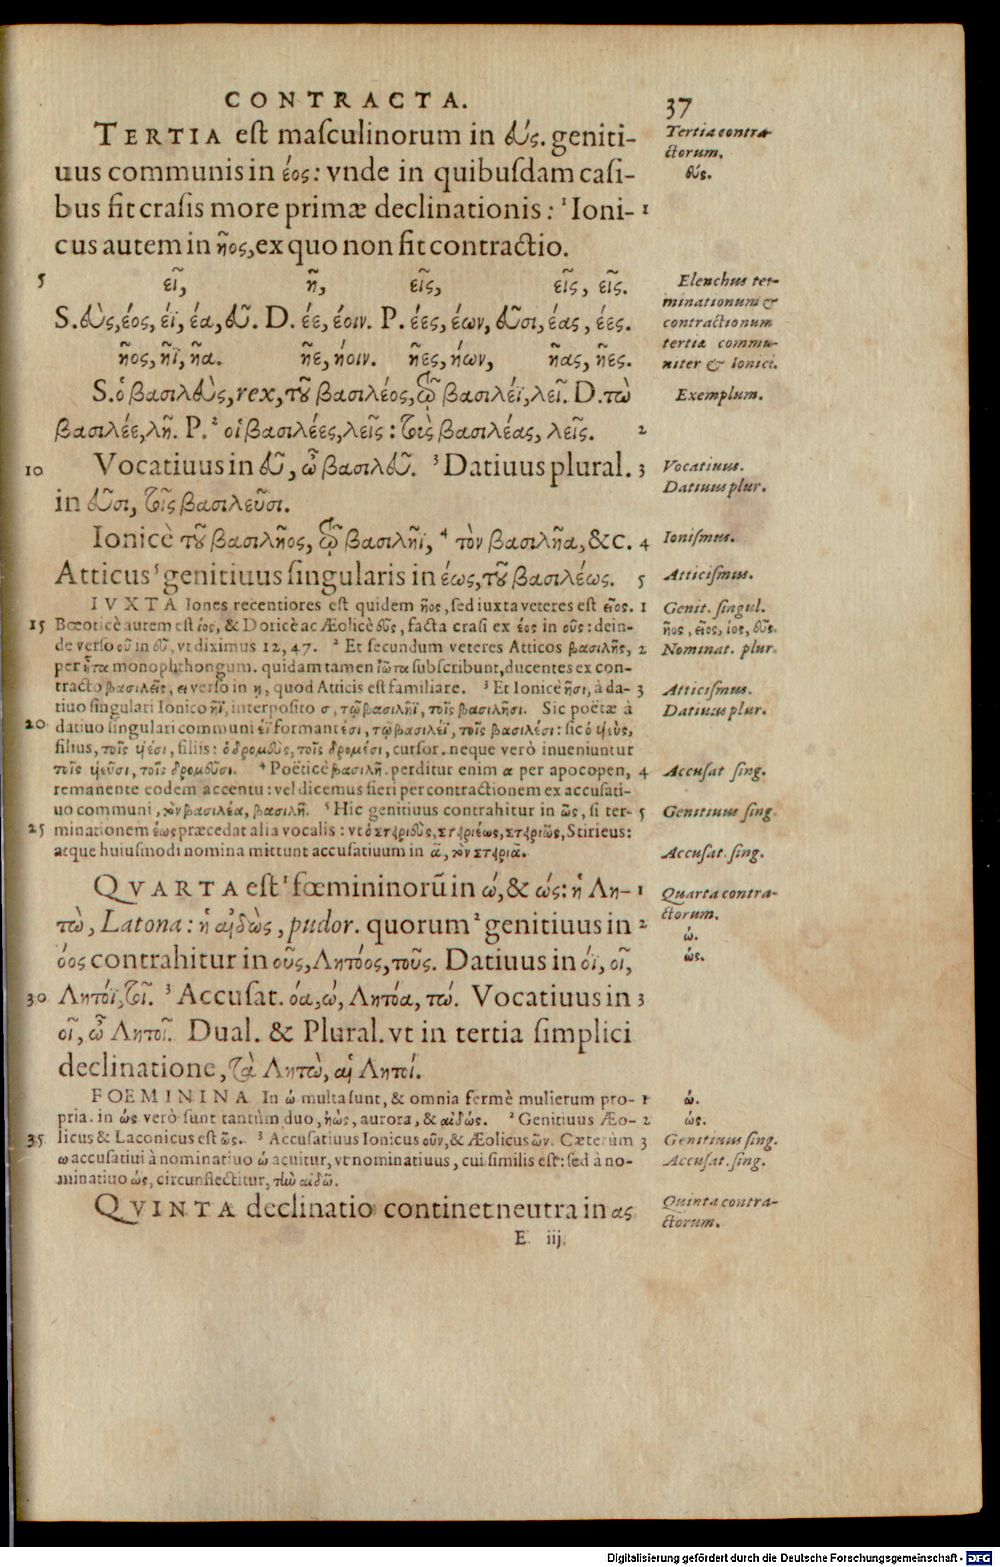 CONTRACTA. 37
TERTIA eſt maſculinorum in εύς. geniti-
uus communis in έος: vnde in quibuſdam caſi-
bus fit craſis more primæ declinationis: ¹ Ioni- 1
cus autem in ῆος, ex quo non fit contractio.
5 εῖ, ῆ, εῖς, εῖς, εῖς.
S. εὺς, έος, έϊ, έα, εῦ. D. έε, έοιν. P. έες, έων, εῦσι, έας, έες.
ῆος, ῆϊ, ῆα. ῆε, ήοιν. ῆες, ήων, ῆας, ῆες.
S. ὁ βασιλεὺς, rex, τοῦ βασιλέος, τῷ βασιλέϊ, λεῖ. D. τὼ
βασιλέε, λῆ. P. ² οἱ βασιλέες, λεῖς: τοὺς βασιλέας, λεῖς. 2
10 Vocatiuus in εῦ, ὦ βασιλεῦ. ³ Datiuus plural. 3
in εῦσι, τοῖς βασιλεῦσι.
Ionicè τοῦ βασιλῆος, τῷ βασιλῆϊ, ⁴ τὸν βασιλῆα, &c. 4
Atticus ⁵ genitiuus ſingularis in έως, τοῦ βασιλέως. 5
IVXTA Iones recentiores eſt quidem ῆος, ſed iuxta veteres eſt εῖος. 1
15 Bœoticè autem eſt ίος, & Doricè ac Æolicè εῦς, facta craſi ex έος in οῦς: dein-
de verſo οῦ in εῦ, vt diximus 12, 47. ² Et ſecundum veteres Atticos βασιλῆς, 2
per ἦτα monophthongum. quidam tamen ἰῶτα ſubſcribunt, ducentes ex con-
tracto βασιλεῖς, ει verſo in ῃ, quod Atticis eſt familiare. ³ Et Ionicè ῆσι, à da- 3
tiuo ſingulari Ionico ῆϊ, interpoſito σ, τῷ βασιλῆϊ, τοῖς βασιλῆσι. Sic poëtæ à
20 datiuo ſingulari communi έϊ formant έσι, τῷ βασιλέϊ, τοῖς βασιλέσι: ſic ὁ υἱεὺς,
filius, τοῖς υἱέσι, filiis: ὁ δρομεὺς, τοῖς δρομέσι, curſor. neque verò inueniuntur
τοῖς υἱεῦσι, τοῖς δρομεῦσι. ⁴ Poëticè βασιλῆ. perditur enim α per apocopen, 4
remanente eodem accentu: vel dicemus fieri per contractionem ex accuſati-
uo communi, τὸν βασιλέα, βασιλῆ. ⁵ Hic genitiuus contrahitur in ῶς, ſi ter- 5
25 minationem έως præcedat alia vocalis: vt ὁ στειριεὺς, στειριέως, στειριῶς, Stirieus:
atque huiuſmodi nomina mittunt accuſatiuum in ᾶ, τὸν στειριᾶ.
QVARTA eſt ¹ fœmininorũ in ώ, & ώς: ἡ Λη- 1
τὼ, Latona: ἡ αἰδὼς, pudor. quorum ² genitiuus in 2
όος contrahitur in οῦς, Λητόος, τοῦς. Datiuus in όϊ, οῖ,
30 Λητόϊ, τοῖ. ³ Accuſat. όα, ώ, Λητόα, τώ. Vocatiuus in 3
οῖ, ὦ Λητοῖ. Dual. & Plural. vt in tertia ſimplici
declinatione, τὰ Λητὼ, αἱ Λητοί.
FOEMININA In ώ multa ſunt, & omnia fermè mulierum pro- 1
pria. in ώς verò ſunt tantùm duo, ἠώς, aurora, & αἰδώς. ² Genitiuus Æo- 2
35 licus & Laconicus eſt ῶς. ³ Accuſatiuus Ionicus οῦν, & Æolicus ῶν. Cæterùm 3
ω accuſatiui à nominatiuo ώ acuitur, vt nominatiuus, cui ſimilis eſt: ſed à no-
minatiuo ώς, circunflectitur, τὴν αἰδῶ.
QVINTA declinatio continet neutra in ας
E iij.
Tertia contra-
ctorum.
εύς.
Elenchus ter-
minationum &
contractionum
tertiæ commu-
niter & Ionicè.
Exemplum.
Vocatiuus.
Datiuus plur.
Ioniſmus.
Atticiſmus.
Genit. ſingul.
ῆος, εῖος, ίος, εῦς.
Nominat. plur.
Atticiſmus.
Datiuus plur.
Accuſat ſing.
Genitiuus ſing.
Accuſat. ſing.
Quarta contra-
ctorum.
ώ.
ώς.
ώ.
ώς.
Genitiuus ſing.
Accuſat. ſing.
Quinta contra-
ctorum.
Digitalisierung gefördert durch die Deutsche Forschungsgemeinschaft - DFG